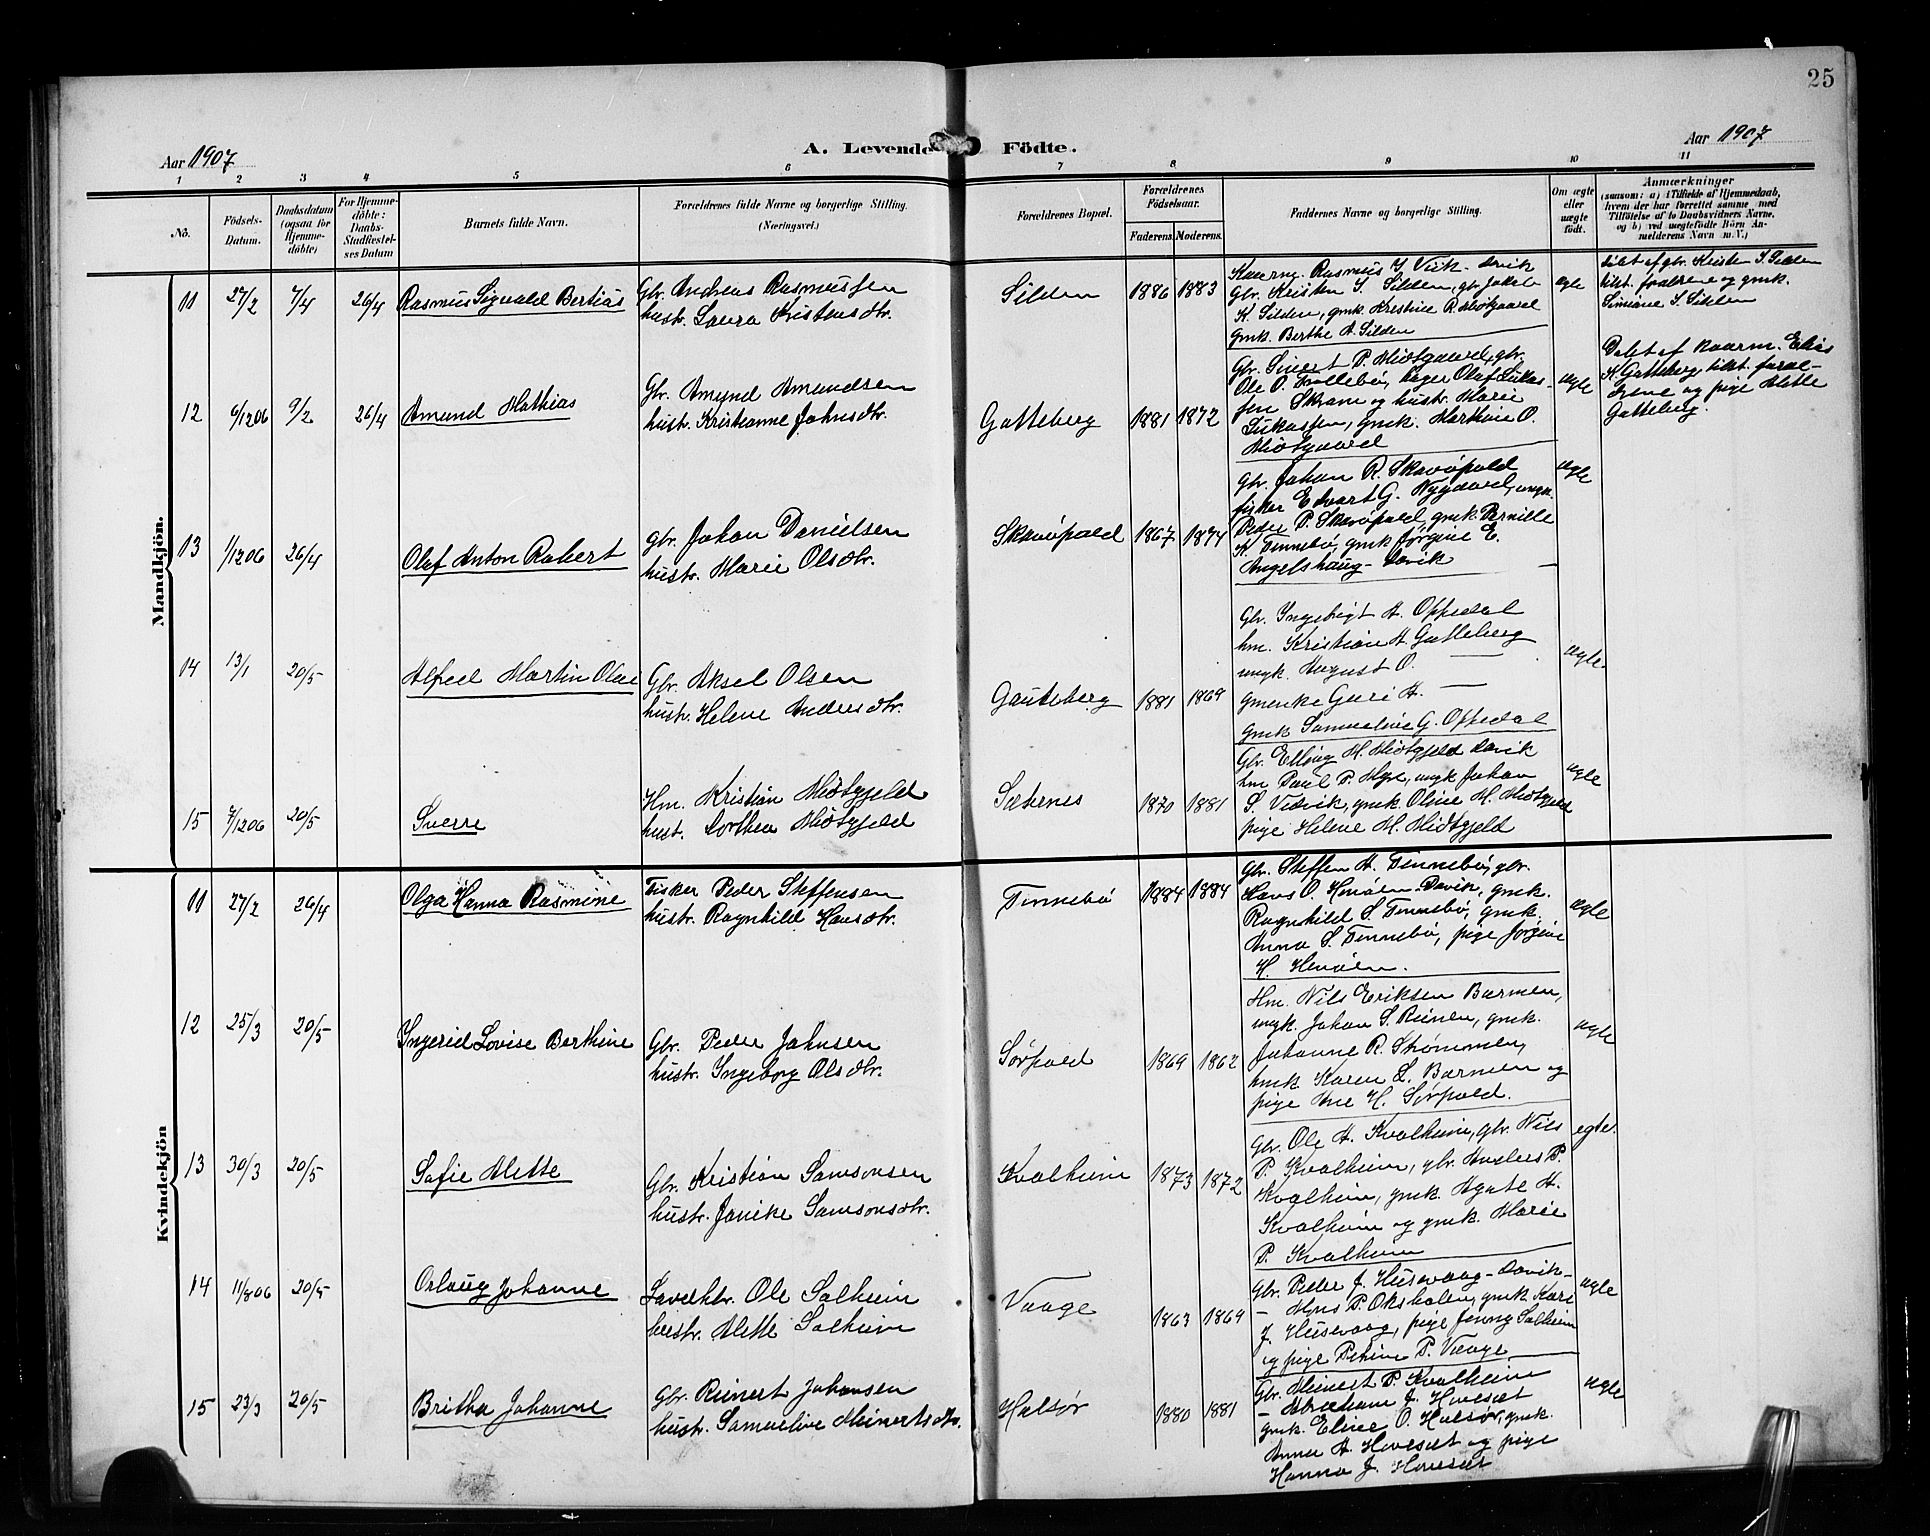 25
Aar 1907
A. Levende Födte.
Aar 1907
1 2 3 4 5 6 7 8 9 10 11
No.
Födsels-
Datum.
Daabsdatum
(ogsaa for
Hjemme-
döbte)
For Hjemme-
döbte:
Daabs-
Stadfæstel-
ses Datum
Barnets fulde Navn.
Forældrenes fulde Navne og borgerlige Stilling.
(Næringsvei.)
Forældrenes Bopæl.
Forældrenes
Födselsaar.
Faderens. Moderens.
Faddernes Navne og borgerlige Stilling.
Om ægte
eller
uægte
födt.
Anmærkninger
(saasom: a) i Tilfælde af Hjemmedaab,
hvem der har forrettet samme med
Tilföielse af to Daabsvidners Navne,
og b) ved uægtefödte Börn An-
melderens Navn m. V.)
Mandkjön.
11 27/2 7/4 26/4 Rasmus Sigvald Bertias
Gbr. Andreas Rasmussen
hustr. Laura Kristensdtr.
Silden 1886 1883
Rasmus J. Vik
Gbr. Kristen S. Silden, gbr. Jakob
K. Silden, gmk. Kristine R. Midtgaard
gmk. Berthe A. Silden
ægte
Døbt af gbr. Kristen S. Silden
tilst. forældrene og gmk.
Simiane S. Silden
12 6/12 06 9/2 26/4 Amund Mathias
Gbr. Amund Amundsen
hustr. Kristianne Jahnsdtr.
Gatteberg 1881 1872
Gbr. Sivert P. Midtgaard, gbr.
Ole O. Hollebø, Olaf Lukas-
sen Skram og hustr. Marie
Lukassen, gmk. Marthine O.
Midtgaard
ægte
Døbt af Elias
K. Gatteberg, tilst. foræl-
drene og pige Mette
Gatteberg.
13 1/12 06 26/4 Olaf Anton Robert
Gbr. Johan Danielsen
hustr. Marie Olsdtr.
Skavøpold 1867 1874
Gbr. Johan R. Skavøpold
fisker Edvart G. Nygaard, ungk.
Peder P. Skavøpold, gmk. Pernille
K. Tennebø, gmk Jørgine E.
Angelshaug - Davik
ægte
14 13/1 20/5 Alfred Martin Olai
Gbr. Aksel Olsen
hustr. Helene Andersdtr.
Gauteberg 1881 1869
Gbr. Ingebrigt A. Oppedal
hm. Kristian A. Gatteberg
ungk. August O. —
gmenke Guri A. —
gmk Samueline G. Oppedal
ægte
15 7/12 06 20/5 Sverre
Hm. Kristian Midtgjeld
hust. Dorthea Midtgjeld
Sætenes 1870 1881
Gbr. Elling M. Midtgjeld Davik
hm Paul P. Myre, ungk Johan
S. Vedvik, gmk Oline M. Midtgjeld
pige Helene M. Midtgjeld
ægte
Kvindekjön
11 27/2 26/4 Olga Hanna Rasmine
Fisker Peder Steffensen
hustr. Ragnhild Hansdtr.
Tennebø 1884 1884
Gbr. Steffen A. Tennebø, gbr.
Hans O. Henøen Davik, gmk.
Ragnhild S. Tennebø, gmk.
Anna S. Tennebø, pige Jørgine
H. Henøen.
ægte
12 25/3 20/5 Ingerid Lovise Berthine
Gbr. Peder Johnsen
hustr. Ingeborg Olsdtr.
Sørpold 1869 1862
Hm. Nils Eriksen Barmen,
ungk. Johan S. Reinen, gmk.
Johanne R. Strømmen,
hmk. Karen L. Barmen og
pige Ane H. Sørpold.
ægte
13 30/3 20/5 Sofie Alette
Gbr. Kristian Samsonsen
hustr. Janike Samsonsdtr.
Kvalheim 1873 1872
Gbr. Ole A. Kvalheim, gbr. Nils
P. Kvalheim, gbr. Anders P.
Kvalheim, gmk. Agate A.
Kvalheim og gmk. Marie
P. Kvalheim
ægte.
14 11/8 06 20/5 Oslaug Johanne
Ole Solheim
hustr. Alette Solheim
Vaage 1863 1869
Gbr. Peder J. Husevaag - Davik -
- Mons P. Oksholen, gmk Kari
J. Husevaag, pige Jenny Solheim
og pige Petrine P. Vaage
ægte
15 23/3 20/5 Britha Johanne
Gbr. Reinert Johansen
hustr. Samueline Meinertsdtr.
Halsør 1880 1881
Gbr. Meinert P. Kvalheim
- Abraham J. Hovesæt
gmk. Eline O. Halsør, gmk.
Anna A. Hovesæt og pige
Hanna J. Hovesæt
ægte